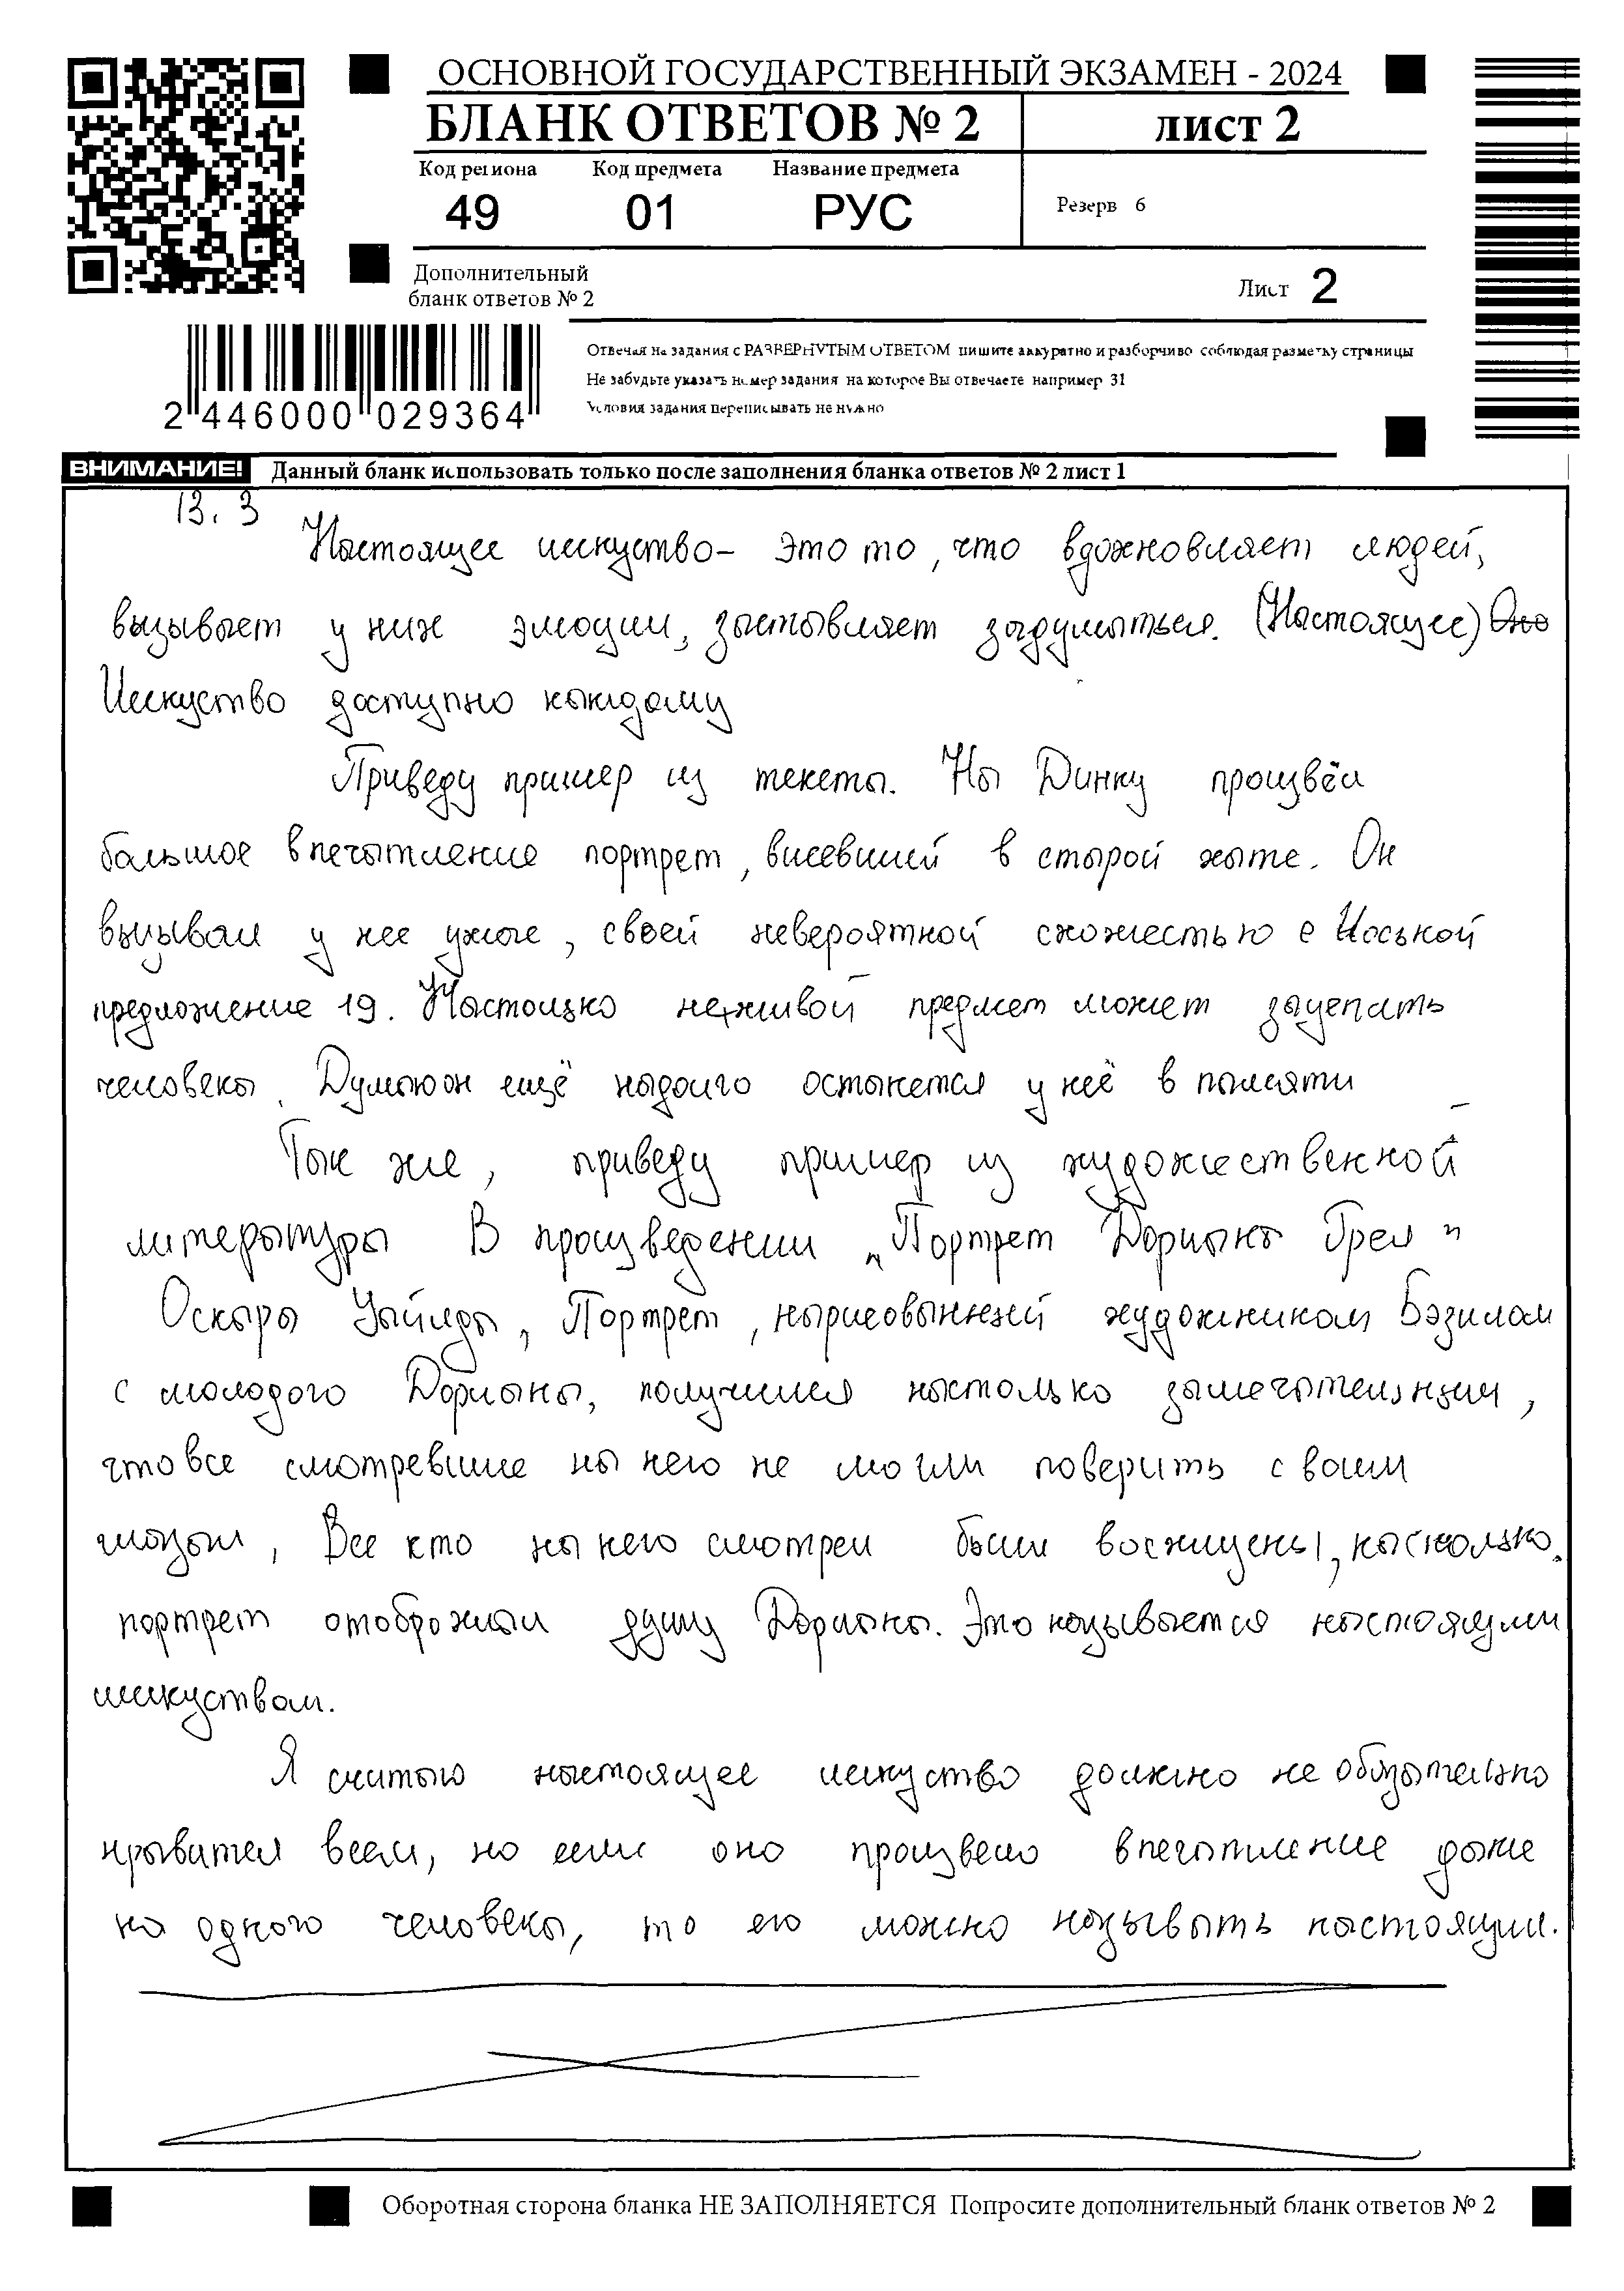 ОСНОВНОЙ ГОСУДАРСТВЕННЫЙ ЭКЗАМЕН - 2024
БЛАНК ОТВЕТОВ № 2 лист 2
Код региона Код предмета Название предмета
49 01 РУС
Резерв 6
Дополнительный
бланк ответов № 2
Лист 2
Отвечая на задания с РАЗВЕРНУТЫМ ОТВЕТОМ пишите аккуратно и разборчиво соблюдая разметку страницы
Не забудьте указать номер задания на которое Вы отвечаете например 31
Условия задания переписывать не нужно
2 446000 029364
ВНИМАНИЕ! Данный бланк использовать только после заполнения бланка ответов № 2 лист 1
13.3
Настоящее искуство- это то, что вдохновляет людей,
вызывает у них эмоции, заставляет задуматься. (Настоящее) Оно
Искуство доступно каждому
Приведу пример из текста. На Динку произвёл
большое впечатление портрет, висевший в старой хате. Он
вызывал у нее ужас, своей невероятной схожестью с Иоськой
предложение 19. Настолько неживой предмет может зацепить
человека. Думаю он ещё надолго останется у неё в памяти
Так же, приведу пример из художественной
литературы В произведении „Портрет Дориана Грея"
Оскара Уайлда, Портрет, нарисованный художником Бэзилом
с молодого Дориана, получился настолько замечательным,
что все смотревшие на него не могли поверить своим
глазам, Все кто на него смотрел были восхищены, насколько
портрет отображал душу Дориана. Это называется настоящим
искуством.
Я считаю настоящее искуство должно не обязательно
нравится всем, но если оно произвело впечатление даже
на одного человека, то его можно называть настоящим.
Оборотная сторона бланка НЕ ЗАПОЛНЯЕТСЯ Попросите дополнительный бланк ответов № 2